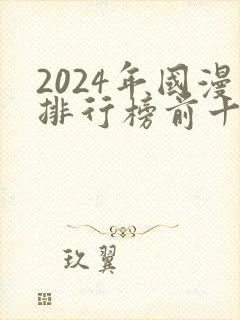 2024年国漫
排行榜前十
玖翼